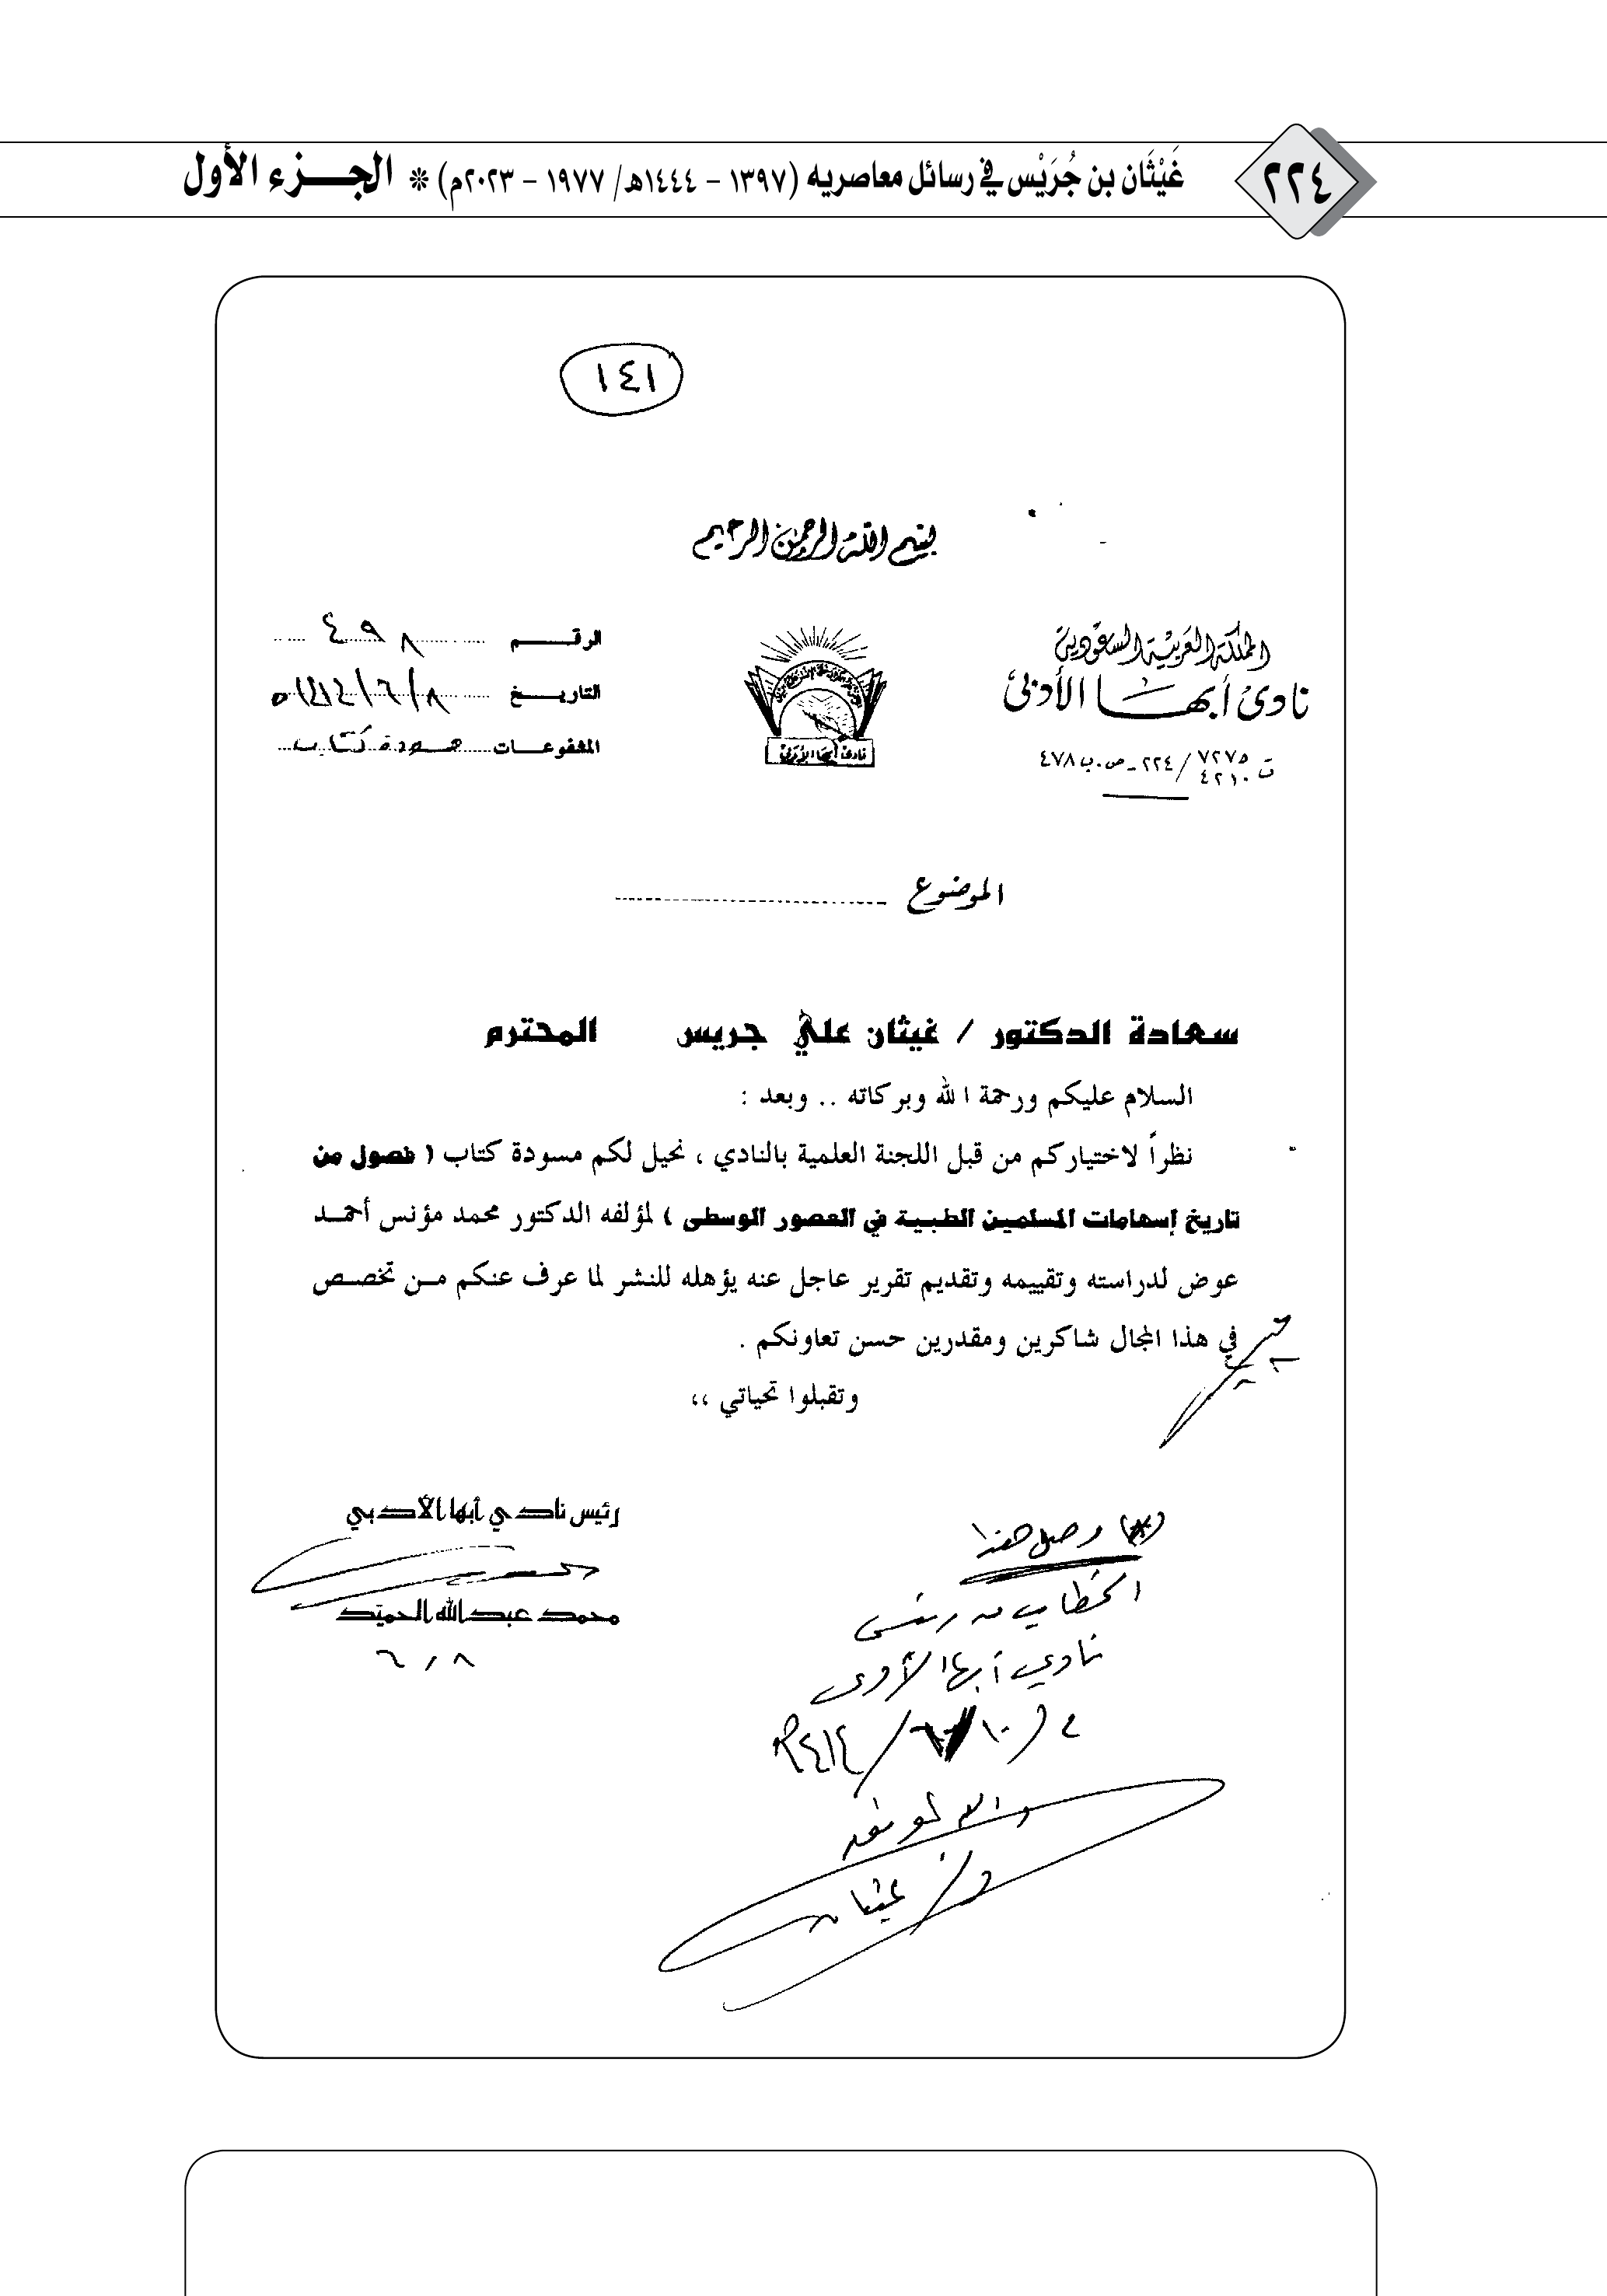 ٢٢٤
غَيْثَان بن جُرَيْس في رسائل معاصريه (١٣٩٧ – ١٤٤٤هـ/ ١٩٧٧ – ٢٠٢٣م) * الجــزء الأول
١٤١
بسم الله الرحمن الرحيم
المملكة العربية السعودية
نادي أبها الأدبي
ت ٧٢٧٥ / ٤٢١٠ / ٢٢٤ ـ ص.ب ٤٧٨
نادي أبها الأدبي
الرقــــم ٤٩٨
التاريــخ ٨/٦/١٤١٤هـ
المشفوعــات مسودة كتاب
الموضوع
سعادة الدكتور / غيثان علي جريس المحترم
السلام عليكم ورحمة الله وبركاته .. وبعد :
نظراً لاختياركم من قبل اللجنة العلمية بالنادي ، نحيل لكم مسودة كتاب ( فصول من
تاريخ إسهامات المسلمين الطبية في العصور الوسطى ) لمؤلفه الدكتور محمد مؤنس أحمــد
عوض لدراسته وتقييمه وتقديم تقرير عاجل عنه يؤهله للنشر لما عرف عنكم مــن تخصــص
في هذا المجال شاكرين ومقدرين حسن تعاونكم .
وتقبلوا تحياتي ،،
رئيس نادي أبها الأدبي
محمد عبدالله الحميّد
٨ / ٦
(*) وصل هذا
الخطاب من رئيس
نادي أبها الأدبي
في ١٠/ /١٤١٤هـ
والله الموفق
د/ غيثان